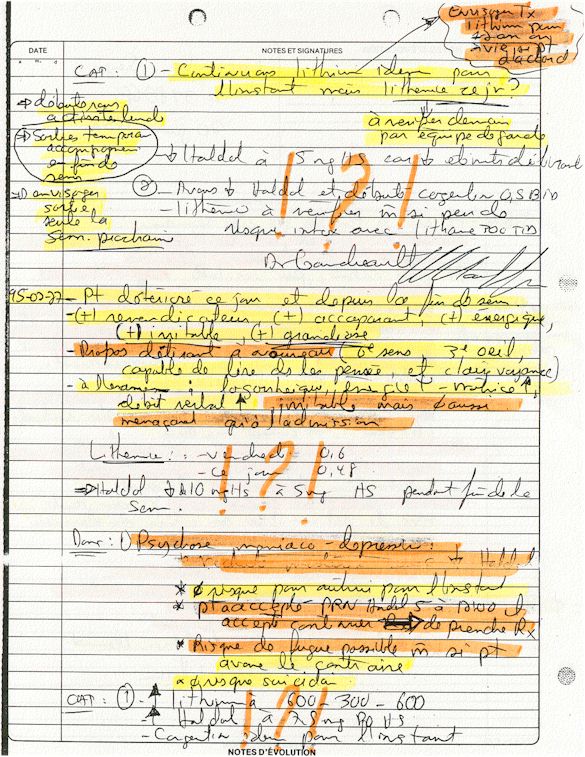 Envisager Tx
lithium pour
1 an
si pt
d'accord
DATE
a m. d
NOTES ET SIGNATURES
CAT: ① - Continuons lithium idem pour
l'instant mais lithémie ce jr?
→ débuterons
à revérifier demain
par équipe de garde
→ Sorties tempora
accompagnée
en fin de
sem
↓ Haldol à 5 mg HS car ↓
② - Avons ↓ Haldol et débuté cogentin 0,5 BID
→ envisager
sortie
seule la
sem. prochaine
- lithémie à vérifier m̄ si peu de
risque intox avec lithane 300 TID
Dr Gaudreault
95-02-27 - Pt détérioré ce jour et depuis la fin de sem
- (+) revendicateur (+) accaparant, (+) énergique,
(+) irritable, (+) grandiose
- Propos délirant à nouveau (6e sens 3e oeil,
capable de lire ds les pensée, et clairvoyance)
- à l'examen: logorrhéique,
débit verbal ↑ irritable mais ø aussi
menaçant qu'à l'admission
Lithémie: - vendredi 0,6
- ce jour 0,48
⇒ Haldol ↓ 10 mg HS à 5 mg HS pendant fin de la
sem.
Donc: 1) Psychose maniaco-dépressive:
Haldol
* ø risque pour autrui pour l'instant
* pt accepté PRN Haldol 5 à
accepte continuer de prendre Rx
* Risque de fugue possible m̄ si pt
avance le contraire
* ø risque suicidaire
CAT: ① ↑ lithium à 600 - 300 - 600
↑ Haldol à 7,5 mg PO HS
- Cogentin idem pour l'instant
!?!
!?!
!?!
NOTES D'ÉVOLUTION